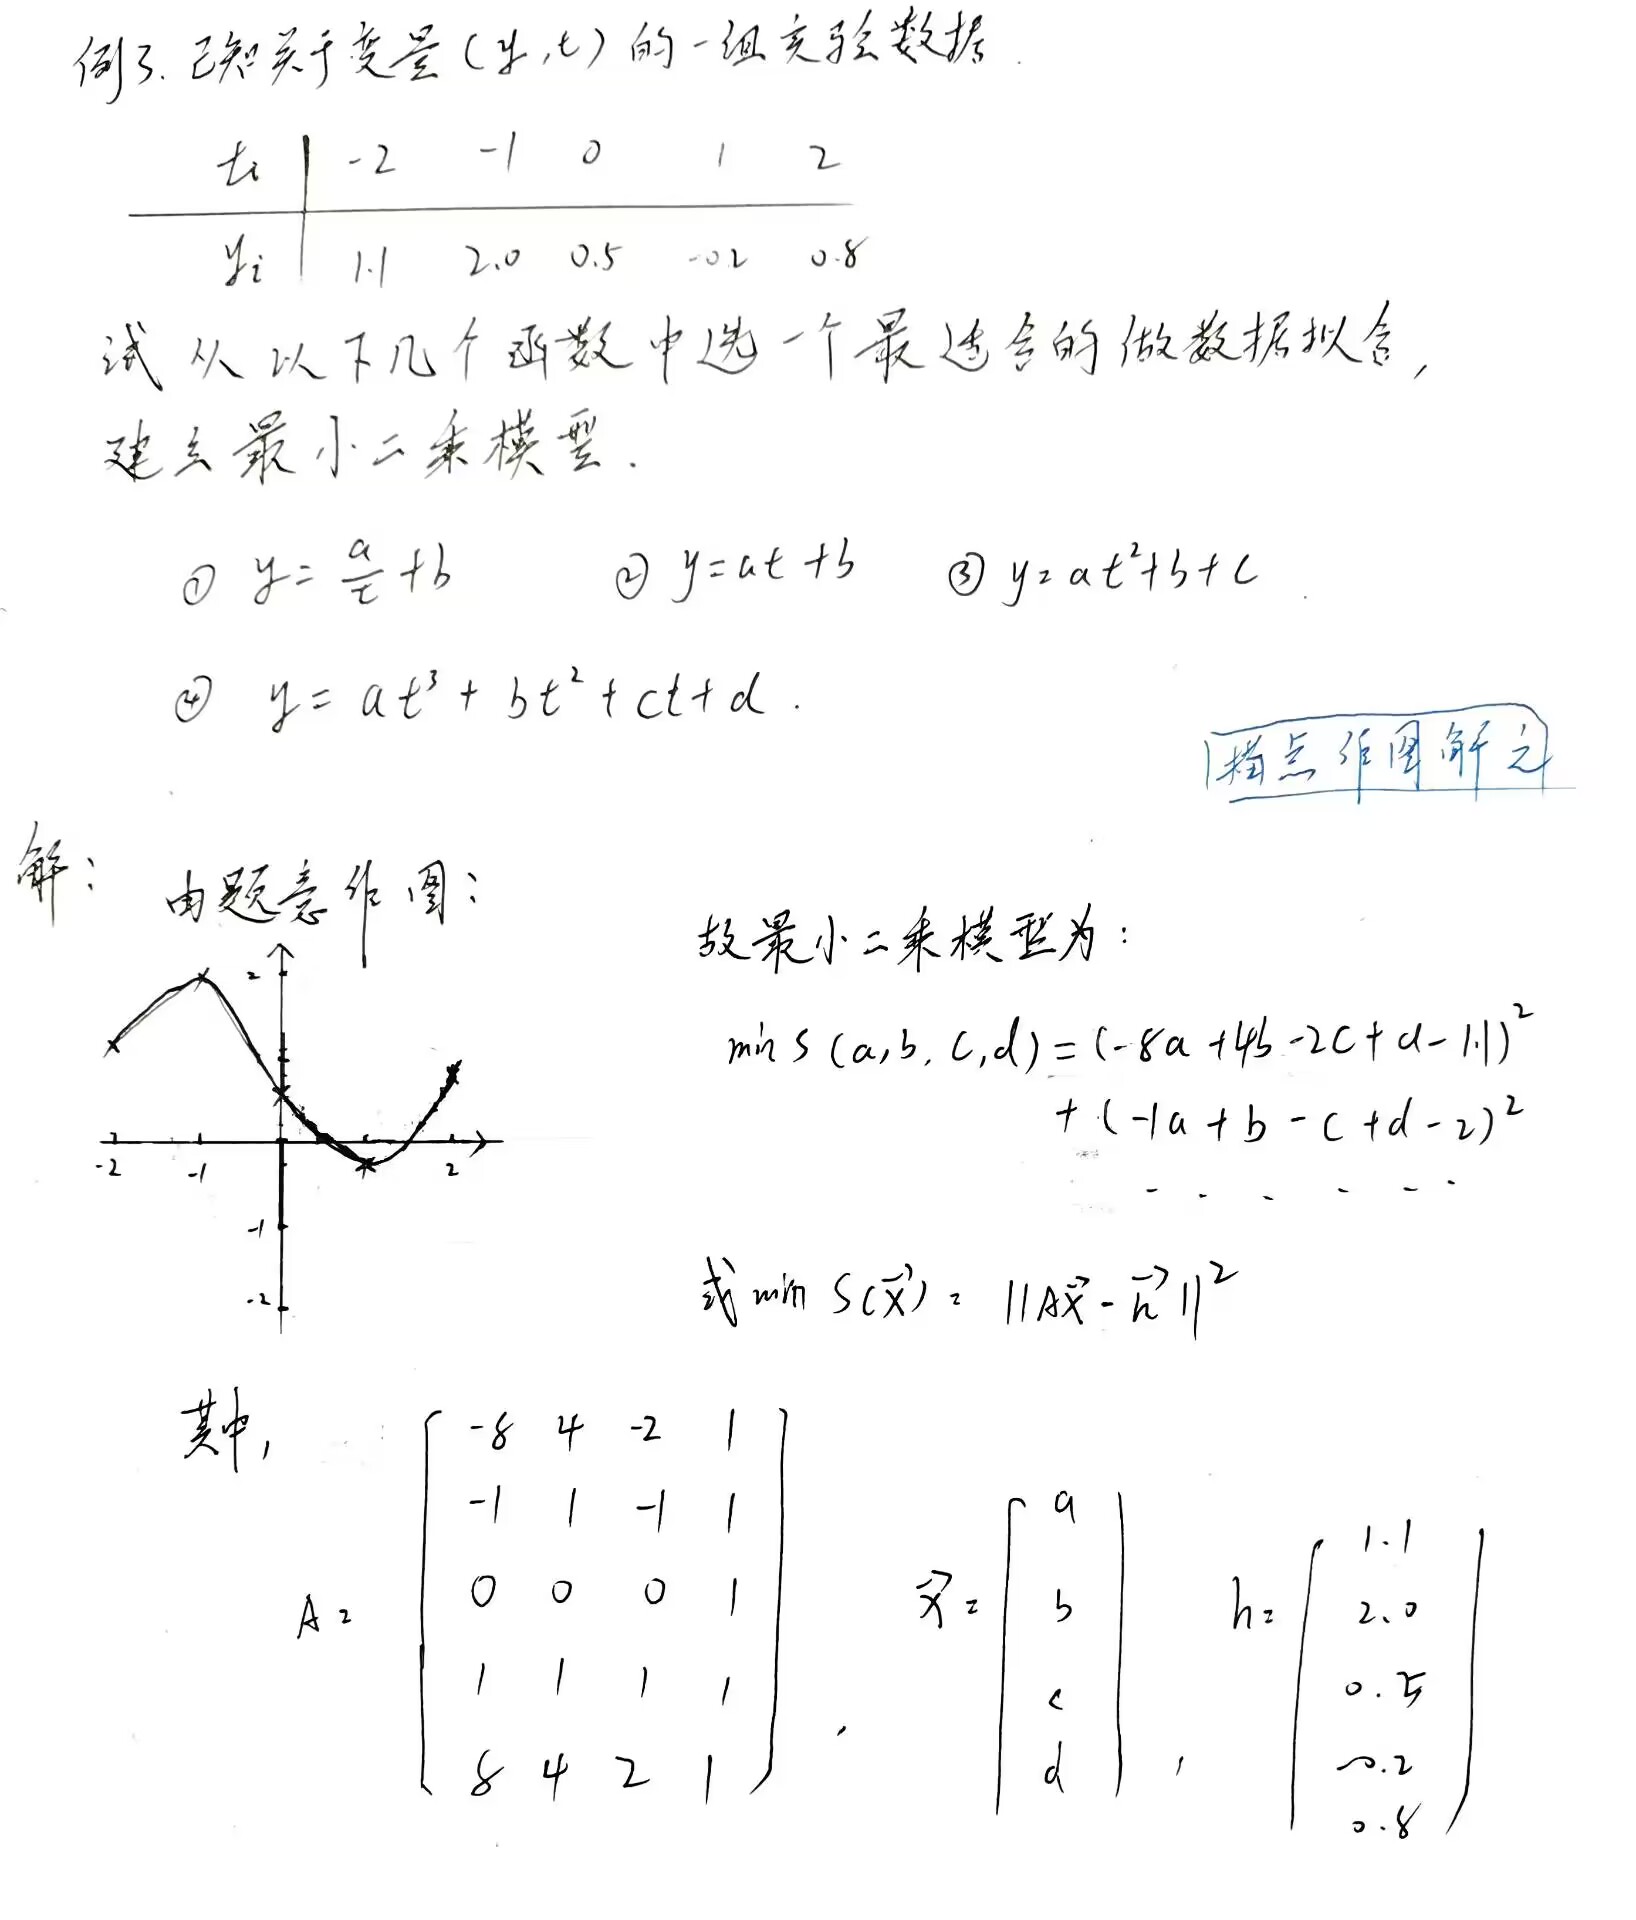 例3. 已知关于变量(y,t)的一组实验数据.
ti | -2 -1 0 1 2
yi | 1.1 2.0 0.5 -0.2 0.8
试从以下几个函数中选一个最适合的做数据拟合,
建立最小二乘模型.
① y = a/t + b ② y = at + b ③ y = at² + b + c .
④ y = at³ + bt² + ct + d .
描点作图解之
解: 由题意作图:
2
-2 -1 2
-1
-2
故最小二乘模型为:
min S (a, b, c, d) = (-8a + 4b - 2c + d - 1.1)²
+ (-1a + b - c + d - 2)²
- - - - - -
或 min S(x⃗) = ||Ax⃗ - h⃗||²
其中,
A = [ -8 4 -2 1
-1 1 -1 1
0 0 0 1
1 1 1 1
8 4 2 1 ] ,
x⃗ = [ a
b
c
d ] ,
h = [ 1.1
2.0
0.5
-0.2
0.8 ]